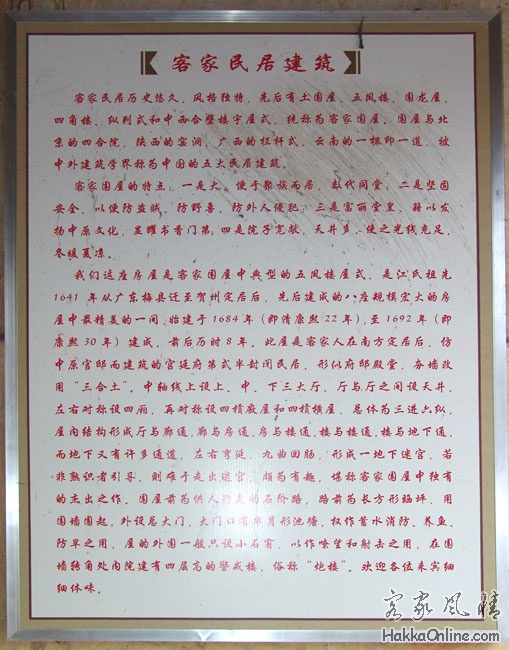 客家民居建筑
客家民居历史悠久，风格独特，先后有土围屋、五凤楼、围龙屋、
四角楼、纵列式和中西合璧楼宇屋式，统称为客家围屋。围屋与北
京的四合院，陕西的窑洞，广西的栏杆式，云南的一棵印一道，被
中外建筑学界称为中国的五大民居建筑。
客家围屋的特点：一是大，便于聚族而居，数代同堂；二是坚固
安全，以便防盗贼，防野兽，防外人侵犯；三是富丽堂皇，藉以发
扬中原文化，显耀书香门第；四是院子宽敞，天井多，使之光线充足，
冬暖夏凉。
我们这座房屋是客家围屋中典型的五凤楼屋式，是江氏祖先
1641 年从广东梅县迁至贺州定居后，先后建成的八座规模宏大的房
屋中最精美的一间，始建于 1684 年（即清康熙 22 年），至 1692 年（即
康熙 30 年）建成，前后历时 8 年。此屋是客家人在南方定居后，仿
中原官邸而建筑的宫廷府第式半封闭民居，形似府邸殿堂，夯墙改
用“三合土”。中轴线上设上、中、下三大厅，厅与厅之间设天井，
左右对称设四厢，再对称设四横廒屋和四横横屋，总体为三进六纵，
屋内结构形成厅与廊通，廊与房通，房与楼通，楼与楼通，楼与地下通，
而地下又有许多通道，左右弯延，九曲回肠，形成一地下迷宫，若
非熟识者引导，则难于走出迷宫，颇为有趣，堪称客家围屋中独有
的杰出之作。围屋前为供人行走的石阶路，路前为长方形晒坪，用
围墙围起，外设总大门，大门口有半月形池塘，权作蓄水消防、养鱼、
防旱之用，屋的外围一般只设小石窗，以作嘹望和射击之用，在围
墙转角处内院建有四层高的警戒楼，俗称“炮楼”。欢迎各位来宾细
细体味。
客家风情
HakkaOnline.com